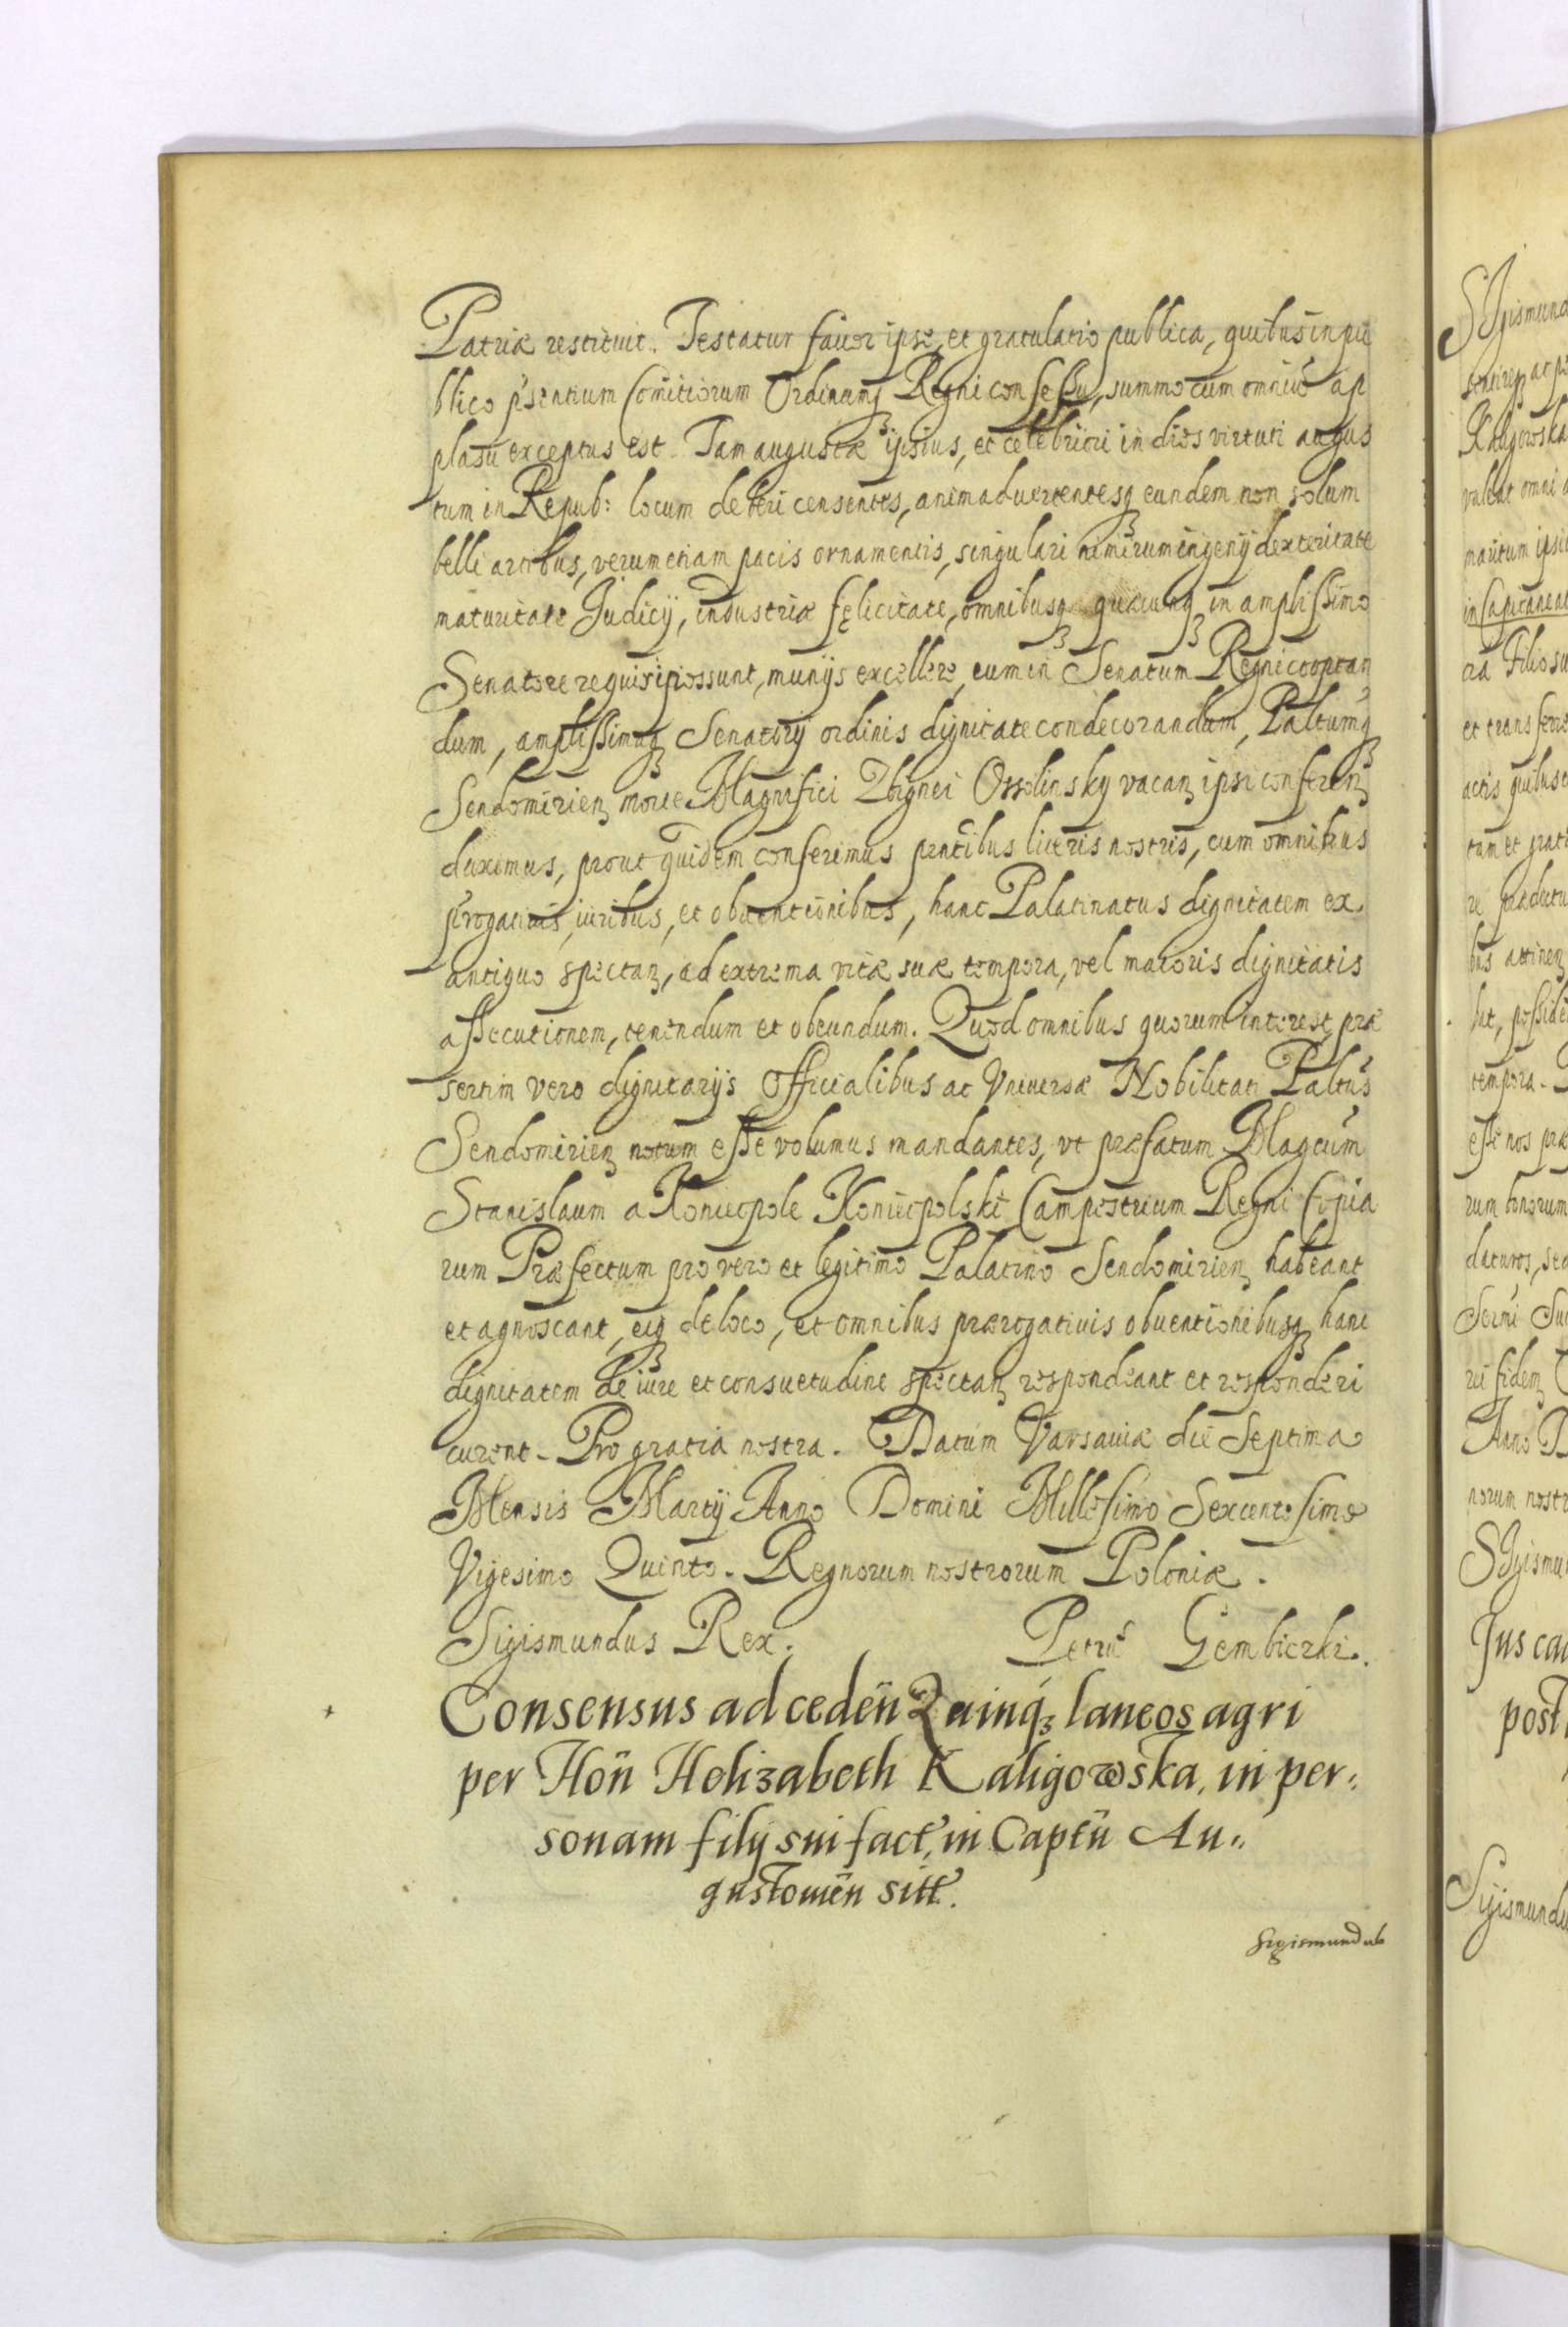 Patriæ restituit. Testatur fauor ipse, et gratulatio publica, quibus in pu
blico p̃sentium Comitiorum Ordinumq́ꝫ Regni consessu, summo cum omniũ ap
plasu exceptus est. Tam augustæ ipsius, et celebriori in dies virtuti augus
tum in Repub: locum deberi censentes, animaduertentesqꝫ eundem non solum
belli artibus, verum etiam pacis ornamentis, singulari nimirum ingenij dexteritate
maturitate Judicij, industriæ fęlicitate, omnibusqꝫ quæcunqꝫ in amplissimo
Senatore requiri possunt, munijs excellere, eum in Senatum Regni cooptan
dum, amplissimaqꝫ Senatorij ordinis dignitate condecorandum, Paltumq́ꝫ
Sendomirienꝫ morte Magnifici Zbignei Ossolinsky vacanꝫ ipsi conferenꝫ
duximus, prout quidem conferimus pñtibus literis nostris, cum omnibus
p̃rogatiuis, iuribus, et obuentionibus, hanc Palatinatus dignitatem ex
antiquo spectanꝫ, ad extrema vitæ suæ tempora, vel maioris dignitatis
assecutionem, tenendum et obeundum. Quod omnibus quorum interest, præ
sertim vero dignitarijs Officialibus ac Vniuersæ Nobilitati Paltũs
Sendomirienꝫ notum esse volumus mandantes, vt præfatum Magcũm
Stanislaum a Koniecpole Koniecpolski Campestrium Regni Copia
rum Præfectum pro vero et legitimo Palatino Sendomirienꝫ habeant
et agnoscant, eiqꝫ de loco, et omnibus prærogatiuis obuentionibusqꝫ hanc
dignitatem de iure et consuetudine spectanꝫ respondeant et responderi
curent. Pro gratia nostra. Datum Varsauiæ die Septima
Mensis Martij Anno Domini Millesimo Sexcentesimo
Vigesimo Quinto. Regnorum nostrorum Poloniæ.
Sigismundus Rex. Petrus Gembiczki.
Consensus ad cedeñ Quinq́ꝫ laneos agri
per Hoñ Helizabeth Kaligowska, in per⸗
sonam filij sui fact, in Captũ Au⸗
gustouieñ sitt.
Sigismundus